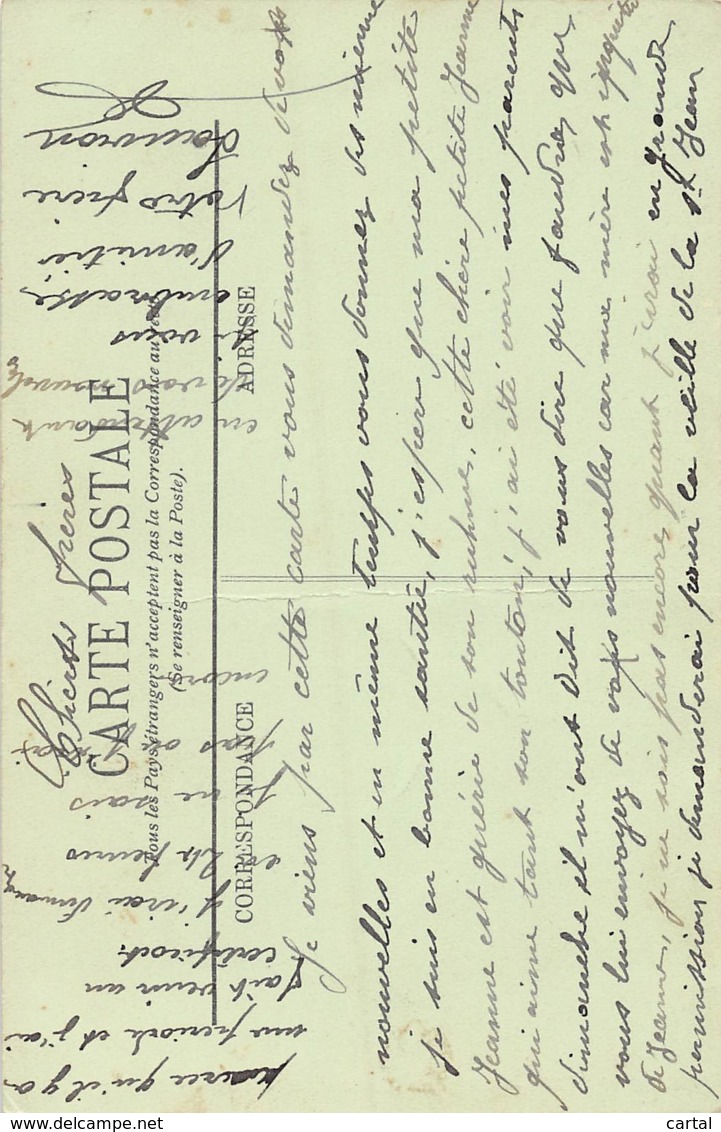 Chers frères
CARTE POSTALE
Tous les Pays étrangers n'acceptent pas la Correspondance au recto
(Se renseigner à la Poste).
CORRESPONDANCE
ADRESSE
Je viens par cette carte vous demandez de vos
nouvelles et en même temps vous donnez des mienne
je suis en bonne santée, j'esper que ma petite
Jeanne est guérie de son ruhme, cette chère petite Jeanne
qui aime tant son tonton, j'ai été voir mes parents
dimanche il m'ont dit de vous dire que faudrez que
vous lui envoyez de vos nouvelles car ma mère est inquiète
de Jeanne, je ne sais pas encore quant j'irai en grande
permission je demanderai pour la veille de la St Jean
parce qu'il y a
une periode et j'ai
fait venir un
certificat
j'irai dimanche
je ne sais
pas
encore
en attendant
de vos nouvelles
je vous
embrasse
d'amitiés
Votre frère
Louvion
cartal